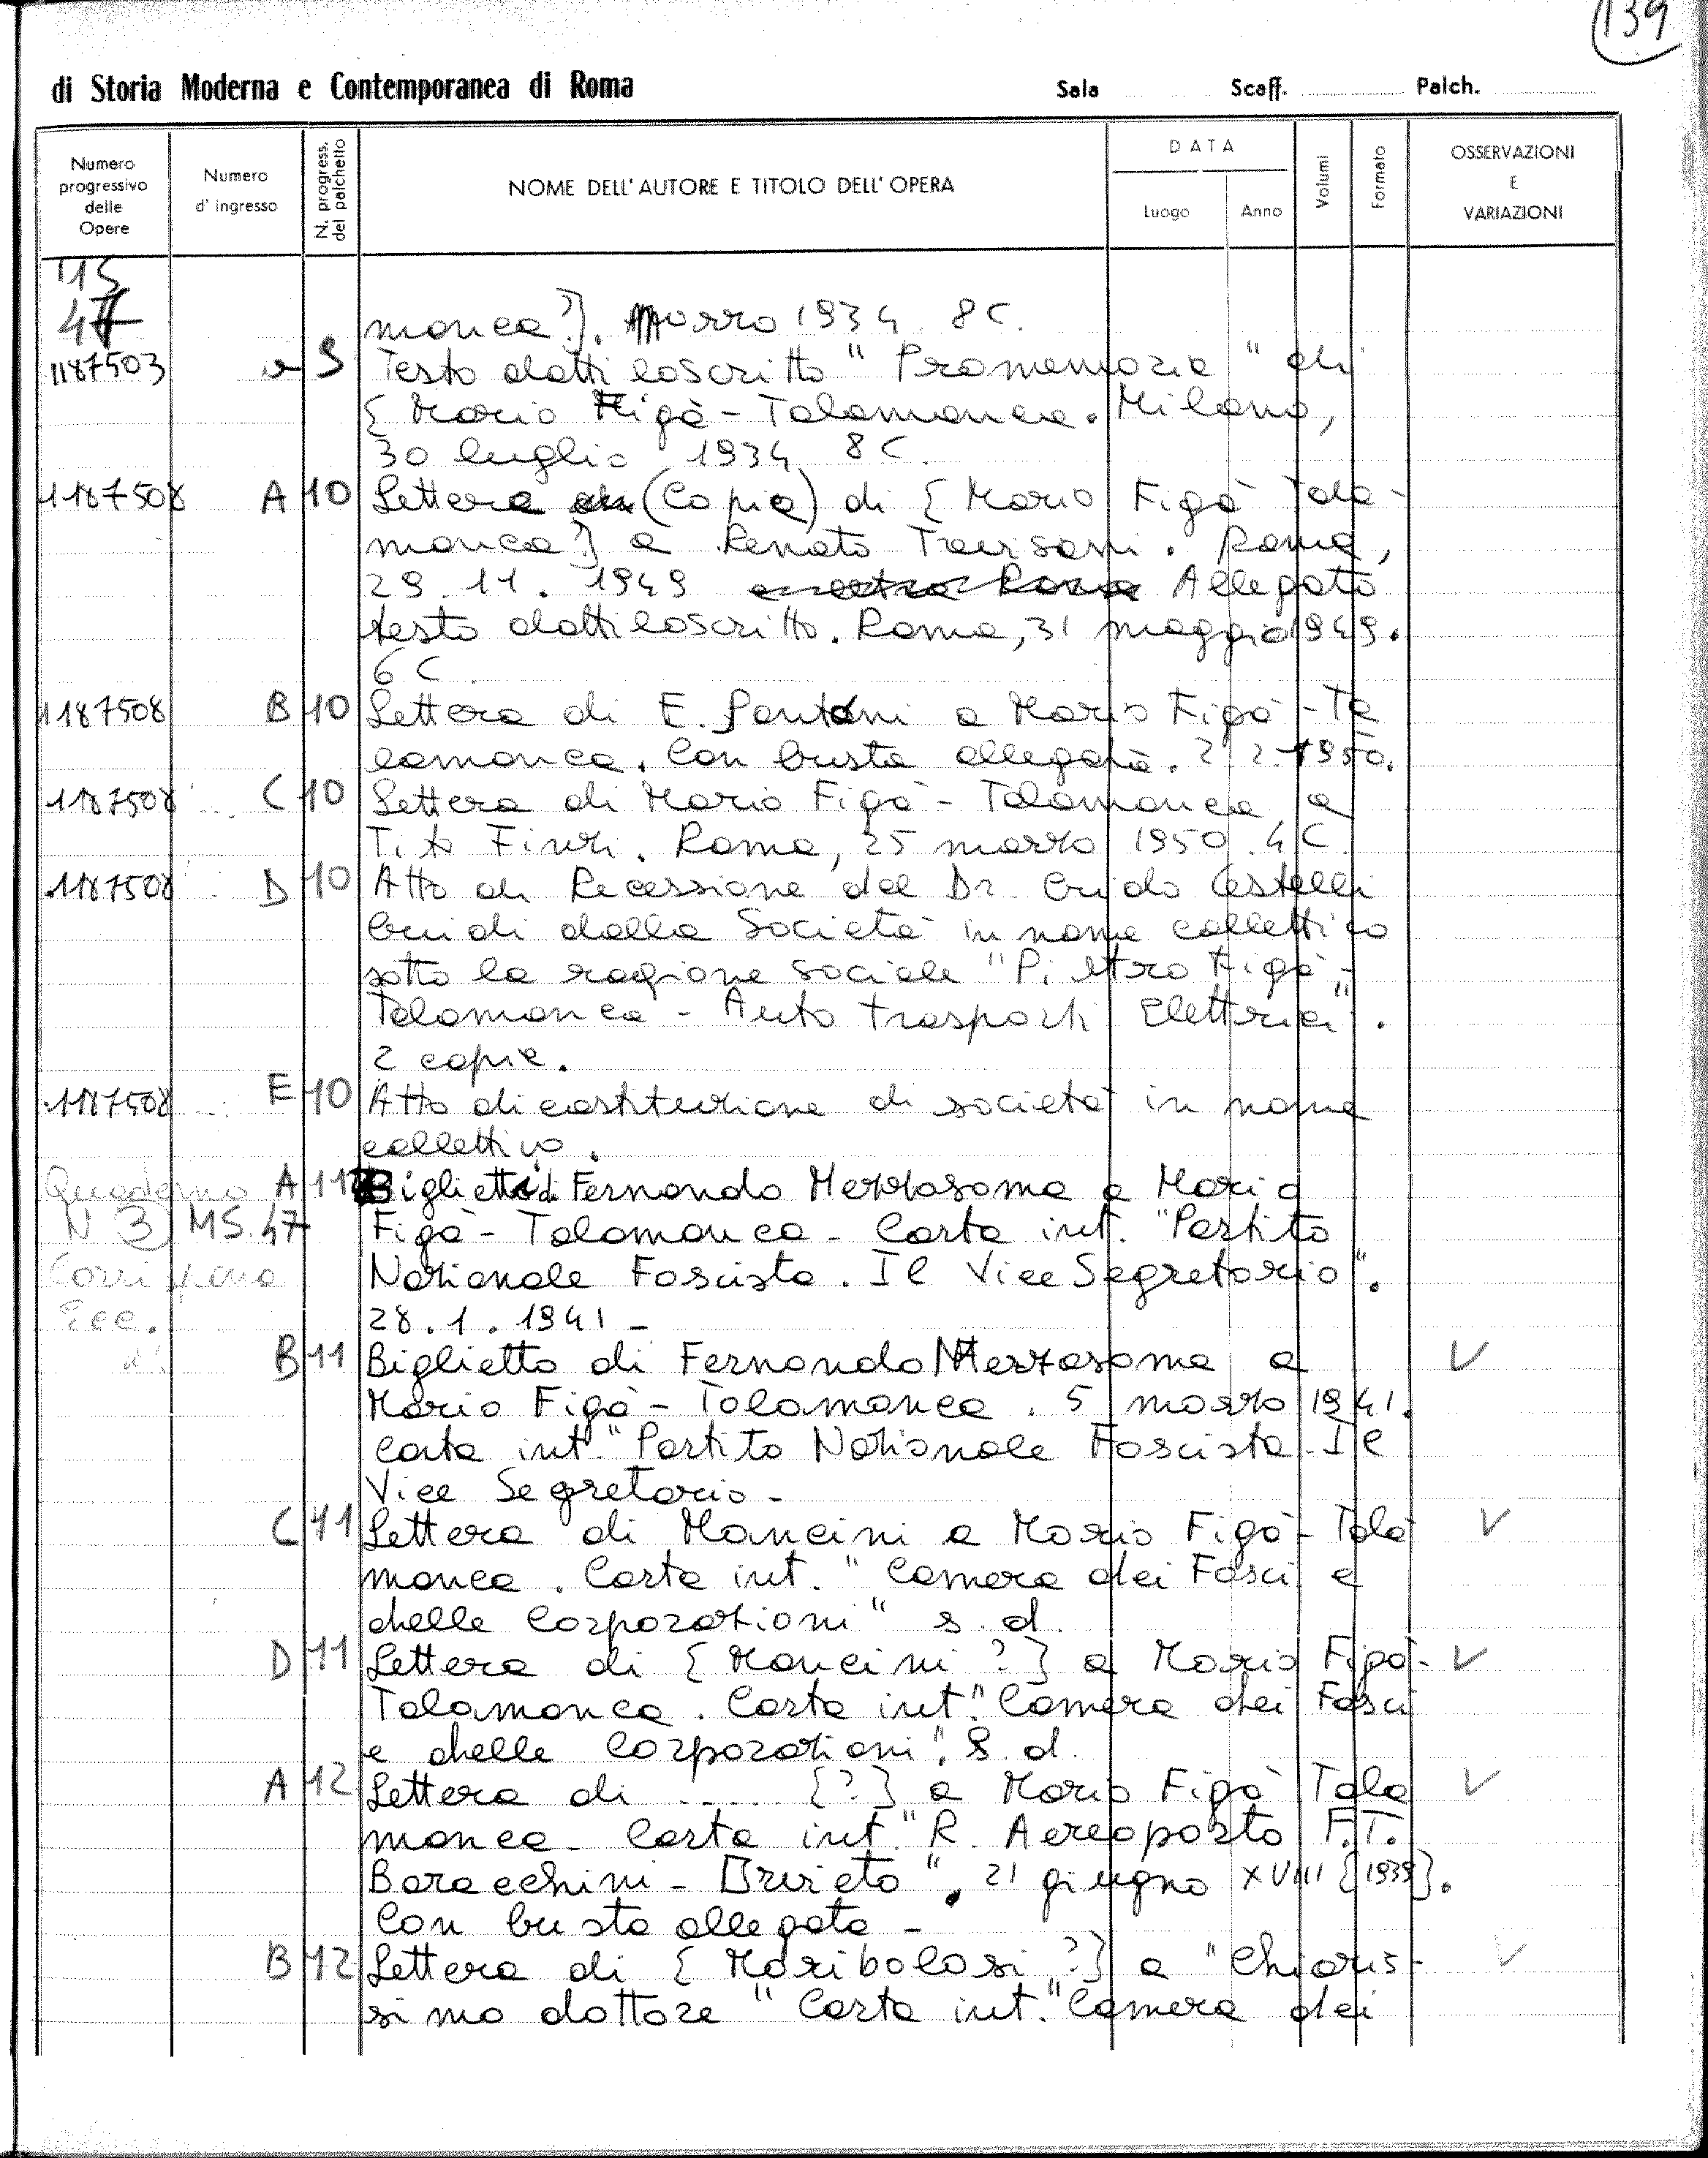 139
di Storia Moderna e Contemporanea di Roma Sala Scaff. Palch.
Numero progressivo delle Opere
Numero d'ingresso
N. progress. del palchetto
NOME DELL'AUTORE E TITOLO DELL'OPERA
DATA
Luogo
Anno
Volumi
Formato
OSSERVAZIONI E VARIAZIONI
MS
47
monca?]. Marzo 1934 8 C.
1187503 9 Testo dattiloscritto "Promemoria" di
[Mario Figà-Talamanca. Milano,
30 luglio 1934 8 C.
1187508 A 10 Lettera (Copia) di [Mario Figà Tala-
manca?] a Renato Trevisani. Roma,
29.11.1949 Allegato
testo dattiloscritto. Roma, 31 maggio 1949.
6 C
1187508 B 10 Lettera di E. a Mario Figà-Ta
lamanca. Con busta allegata. 2 2-1950.
1187508 C 10 Lettera di Mario Figà-Talamanca a
Tito Finzi. Roma, 25 marzo 1950. 4 C.
1187508 D 10 Atto di Recessione del Dr. Guido Castelli
Guidi dalla Società in nome collettivo
sotto la ragione sociale "Pi ttro Figà-
Talamanca - Auto trasporti Elettrici".
2 copie.
1187508 E 10 Atto di costituzione di società in nome
collettivo.
Quaderno A 11 Biglietto di Fernando Mezzasoma a Mario
N 3 MS. 47 Figà-Talamanca - Carta int. "Partito
Nazionale Fascista. Il Vice Segretario".
28.1.1941 -
B 11 Biglietto di Fernando Mezzasoma a V
Mario Figà-Talamanca. 5 marzo 1941.
Carta int. "Partito Nazionale Fascista - Il
Vice Segretario -
C 11 Lettera di Mancini a Mario Figà-Tala V
manca. Carta int. "Camera dei Fasci e
delle Corporazioni" s.d.
D 11 Lettera di [Mancini?] a Mario Figà- V
Talamanca. Carta int. "Camera dei Fasci
e delle Corporazioni". s.d.
A 12 Lettera di ..... [?] a Mario Figà Tala V
manca - Carta int. "R. Aereoporto F.T.
Baracchini - Orvieto". 21 giugno XVIII [1939].
Con busta allegata -
B 12 Lettera di [Maribolosi?] a "Chiaris- V
simo dottore" Carta int. "Camera dei